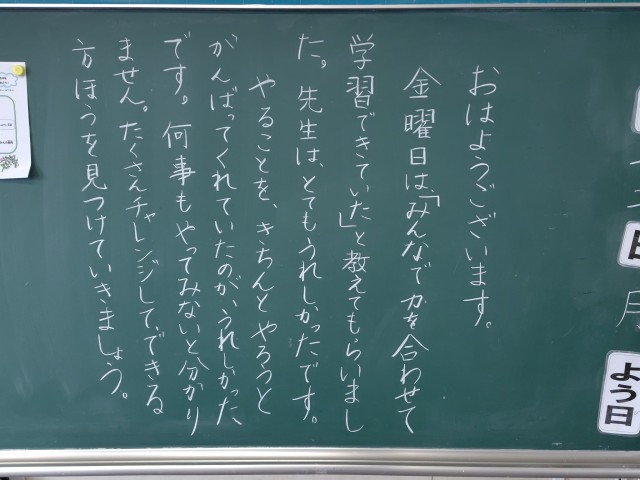 おはようございます。
金曜日は、「みんなで力を合わせて
学習できていた」と教えてもらいまし
た。先生は、とてもうれしかったです。
やることを、きちんとやろうと
がんばってくれていたのが、うれしかった
です。何事もやってみないと分かり
ません。たくさんチャレンジして、できる
方ほうを見つけていきましょう。
日
月
よう日